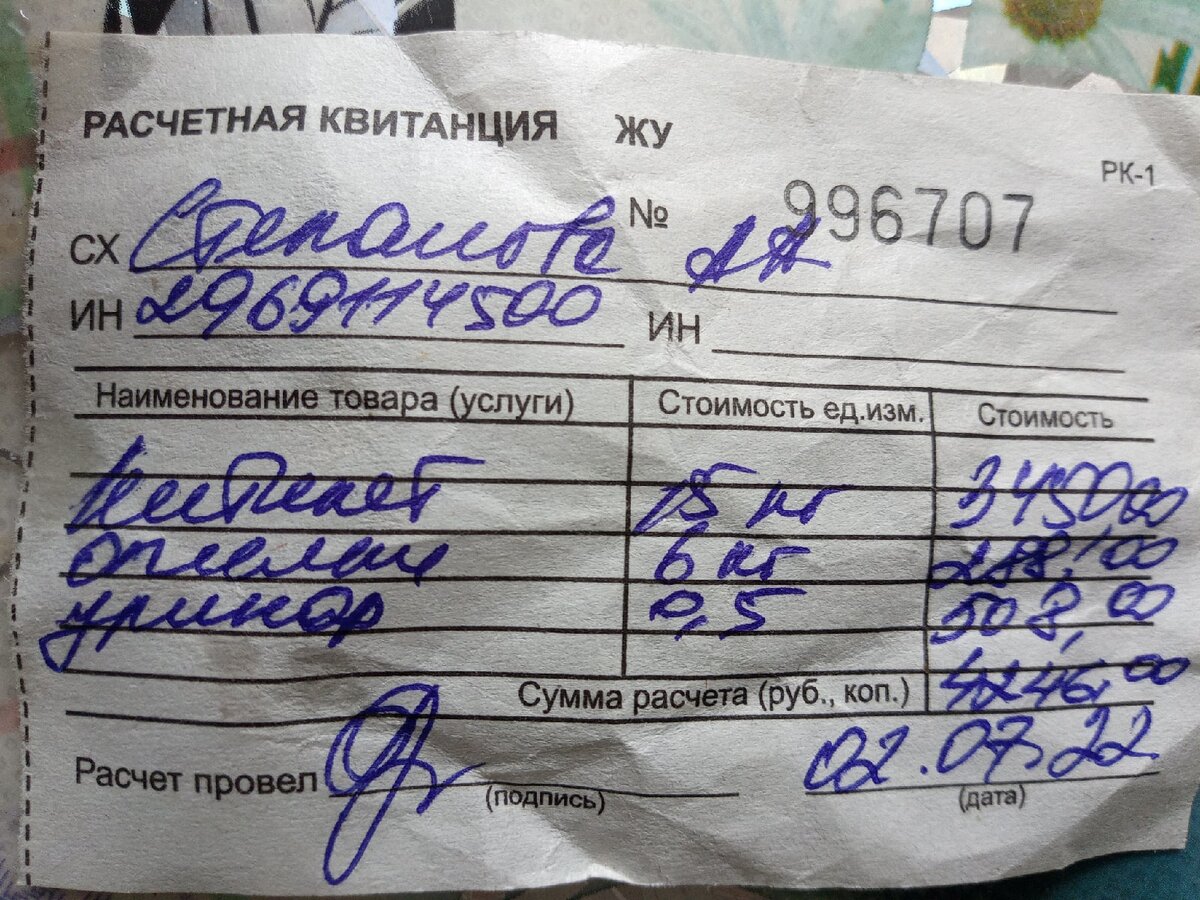 РАСЧЕТНАЯ КВИТАНЦИЯ ЖУ
РК-1
№ 996707
СХ Степанова АА
ИН 2969114500 ИН
Наименование товара (услуги) Стоимость ед.изм. Стоимость
Китикет 15 кг 3450,00
6 кг 288,00
уринор 0,5 508,00
Сумма расчета (руб., коп.) 4246,00
Расчет провел 02.07.22
(подпись) (дата)